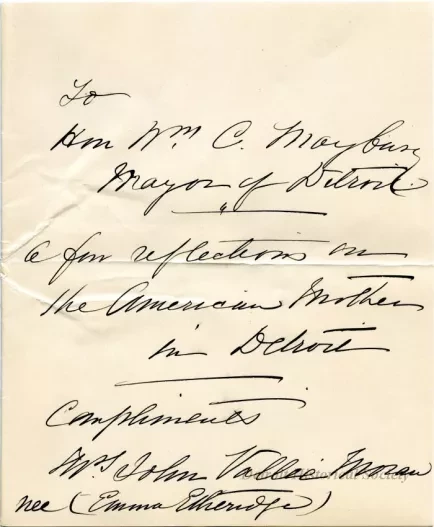 To
Hon Wm C. Maybury
Mayor of Detroit.
"
a few reflections on
the American Mother
in Detroit
Compliments
Mrs John Vallee Moran
nee (Emma Etheridge)
Historical Society